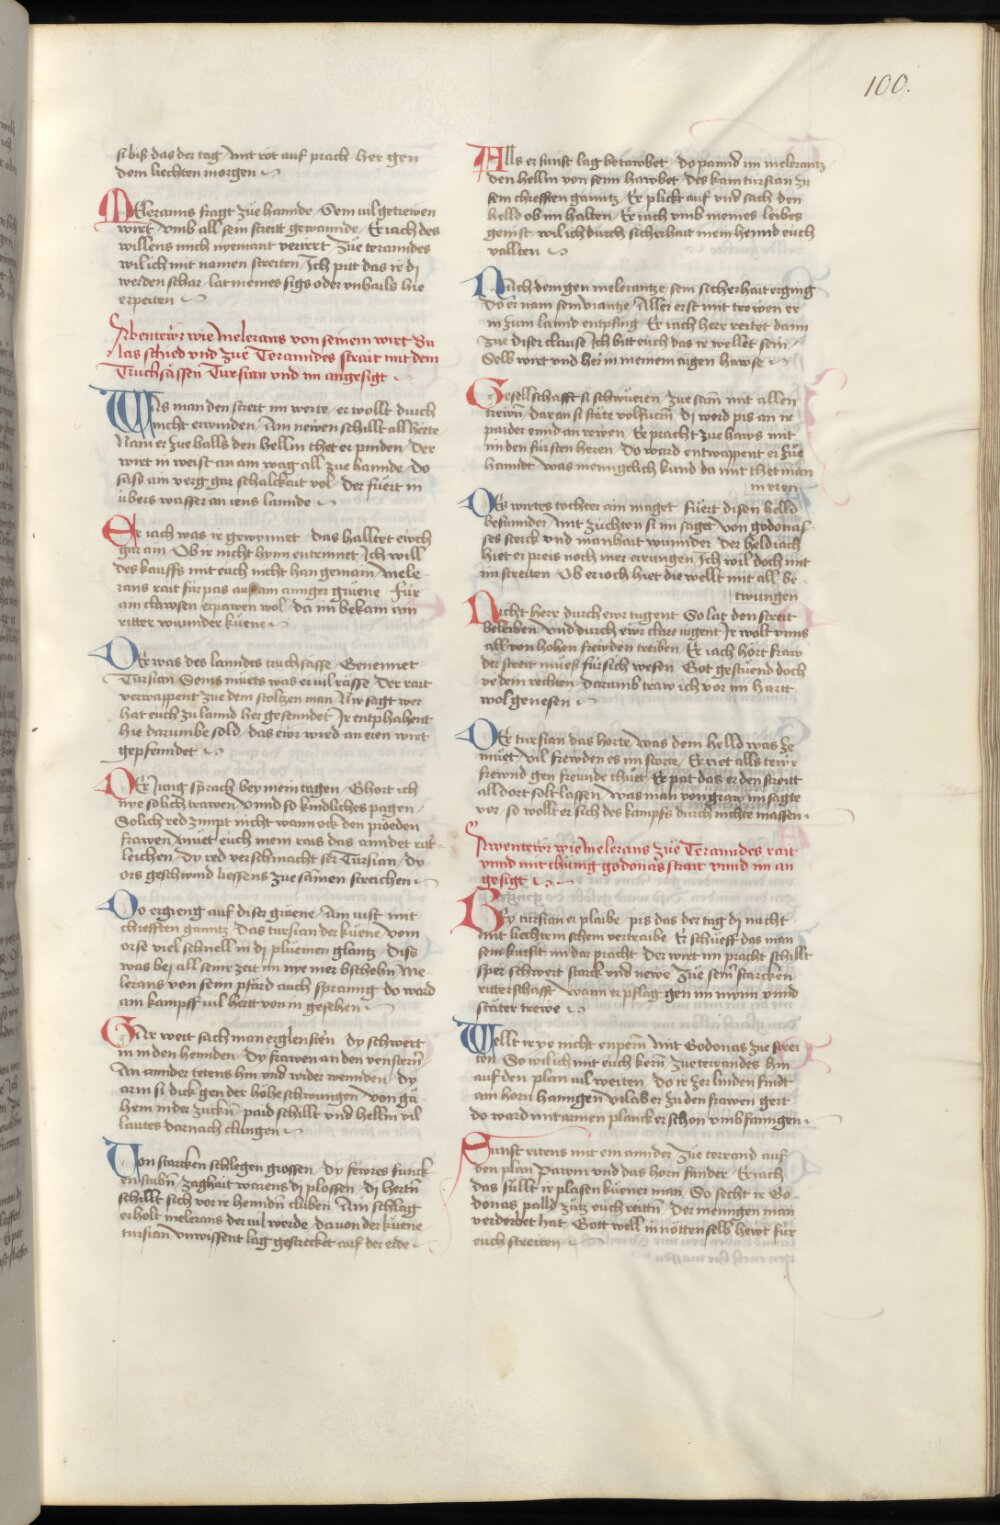 100.
si biß das der tag / mit röt auf prach her gen
dem liechten morgen
Meleranns fragt züe hannde / Sein vil getrewen
wirt / vmb all sein streitt gewannde / Er iach des
willens mich nyemant verirret / Züe terannides
wil ich mit namen streiten / Ich pitt das ir di
werden schar / lat meines sigs oder vnhails hie
erpeiten
Abentewr wie melerans von seinem wirt Bu
las schied vnd züe Terannides strait mit dem
Truchsässen Tursian vnd im angesigt
Was man den streit im werte / er wollt durch
nicht erwinden / Ain newen schillt all herte
Nam er zue halls den hellm thet er pinden / Der
wirt in weist an ain wag all zue hannde / do
sass ain verg gar schalckait vol / der füert in
übers wasser an iens lannde
Er iach was ir gewynnet / das halltet ewch
gar ain / Ob ir nicht hynn entrinnet / Ich will
des kauffs mit euch nicht han gemain / Mele
rans rait fürpas auf ain annger grüene / Für
ain clawsen erpawen wol / da im bekam ain
ritter wunder küene
Der was des lanndes truchsässe / Genennet
Tursian / Seins müets was er vil rässe / Der rait
verwappent zue dem stoltzen man / Nw sagt wer
hat euch zu lannd her gesenndet / Ir entphahent
hie darumbe sold / das ewr wird an eren wirt
gepfenndet
Der Jung sprach bey mein tagen / Ghort ich
nye solich trawen / vnnd so kindliches pagen /
Solich red zimpt nicht wann ock den pröeden
frawen / müet euch mein rais das anndet rit
leichen / Dy red verschmacht ser Tursian / dy
ors geschwind liessens zuesamen streichen
Do ergieng auf diser grüene / Ain iust mit
chrefften ganntz / Das tursian der küene / vom
orse viel schnell in di plüemen glantz / Diss
was bej all seinr zeit im nye mer bschehn / Me
lerans von seim pfärd auch spranng / do ward
ain kampff vil hertt von in gesehen
Gar weit sach man erglensten / dy schwert
in in den hennden / Dy frawen an den venstern
An ainnder tetens hin vnd wider wennden / dy
arm si dick gen der höhe schwungen / von gä
hem nider zuckn / paid schillt vnd hellm vil
lautes darnach clungen
Von starcken schlegen grossen / dy fewres funck
en stubn / zaghait warens di plossen / di hertn
schillt sich vor ir henndn cluben / Ain schlag
erholt melerans der vil werde / dauon der küene
tursian vnwissent lag gestrecket auf der erde
Alls er sunst lag betawbet / do pannd im melerantz
den hellm von seim hawbet / des kam tursian zu
sein chrefften ganntz / Er plickt auf vnd sach den
helld ob im halten / Er iach vmb meines leibes
genist / wil ich durch sicherhait mein hennd euch
vallten
Nach dem gen melerantze / sein sicherhait erging
Do er nam sein viantze / Aller erst mit trewen er
in zum lannd entpfing / Er iach herr reitet dann
zue diser clause / Ich bitt euch das ir wellet sein /
Selb wirt vnd her in meinem aigen hawse
Gesellschafft si schwüeren / zuesam mit allen
trewn / daran si stäte volfuern / di werd pis an ir
paider ennd an rewen / Er pracht zue haws mit
im den fürsten heren / Do ward entwappent er zue
hanndt / was menngklich kund da mit thet man
in eren
Des wirtes tochter ain maget / füert disen helld
besunnder / mit züchten si im saget / von godonas
ses sterck vnd manhait wunnder / der held iach
hiet er preis noch mer errungen / Ich wil doch mit
im streiten / Ob er ioch hiet die wellt mit all be
twungen
Nicht herr durch ewr tugent / So lat den streit
beleiben / vnd durch ewr clare iugent / Ir wolt vnns
all von hohen frewden treiben / Er iach hört fraw
der streit mües für sich wesen / Got gestüend doch
ye dem rechten / darumb traw ich vor im hartt
wol genesen
Der tursian das horte / was dem helld was ze
müet / vil frewden es im storte / Er riet alls tewr
frewnd gen freunde thuet / Er pat das er den streitt
all dort solt lassen / was man von graw im sagte
vor / so wollt er sich des kampfs durch nichte massen
Awentewr wie melerans züe Terannides rait
vnnd mit chünig godonas strait vnnd im an
gesigt
Bey tursian er plaibe / pis das der tag di nacht
mit liechtem schein vertraibe / Er schueff das man
sein kursit im dar pracht / Der wirt im pracht schillt
sper schwert starck vnd newe / Züe sein starcken
ritterschafft / wann er pflag gen im mynn vnnd
stäter trewe
Wellt ir ye nicht enpern / mit Godonas zue strei
ten / So wil ich mit euch kern / zue terrandes hin
auf den plan vil weiten / do ir zer linden findt
ain horn hanngen / vil ab er zu den frawen gert
do ward mit armen planck er schon vmbfanngen
Sunst ritens mit ein annder / Züe terrand auf
den plan / Pawm vnd das horn fander / Er iach
das süllt ir plasen küener man / So secht ir Go
donas palld zutz euch reittn / Der menigen man
verderbet hat / Gott well in nötten selb hewt für
euch streiten